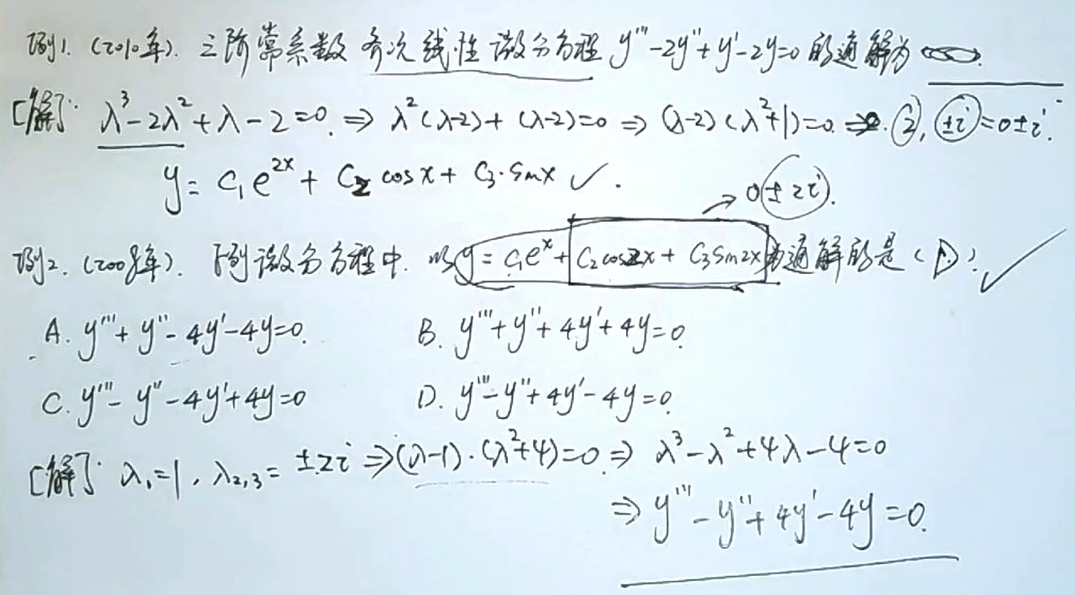 例1.(2010年).三阶常系数齐次线性微分方程y'''-2y''+y'-2y=0的通解为
[解]: λ³-2λ²+λ-2=0.⇒λ²(λ-2)+(λ-2)=0⇒(λ-2)(λ²+1)=0.⇒2,±i=0±i.
y=C₁e^{2x}+C₂cosx+C₃·sinx✓.
→0±2i.
例2.(2008年).下列微分方程中.以y=C₁e^x+C₂cos2x+C₃sin2x为通解的是(D).✓
A.y'''+y''-4y'-4y=0. B.y'''+y''+4y'+4y=0.
C.y'''-y''-4y'+4y=0 D.y'''-y''+4y'-4y=0.
[解] λ₁=1,λ₂,₃=±2i⇒(λ-1)·(λ²+4)=0.⇒λ³-λ²+4λ-4=0
⇒y'''-y''+4y'-4y=0.